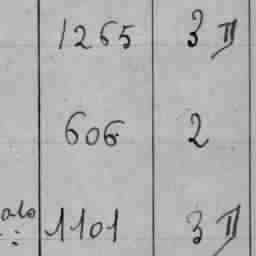 1265 3 II
606 2
alo 1101 3 II